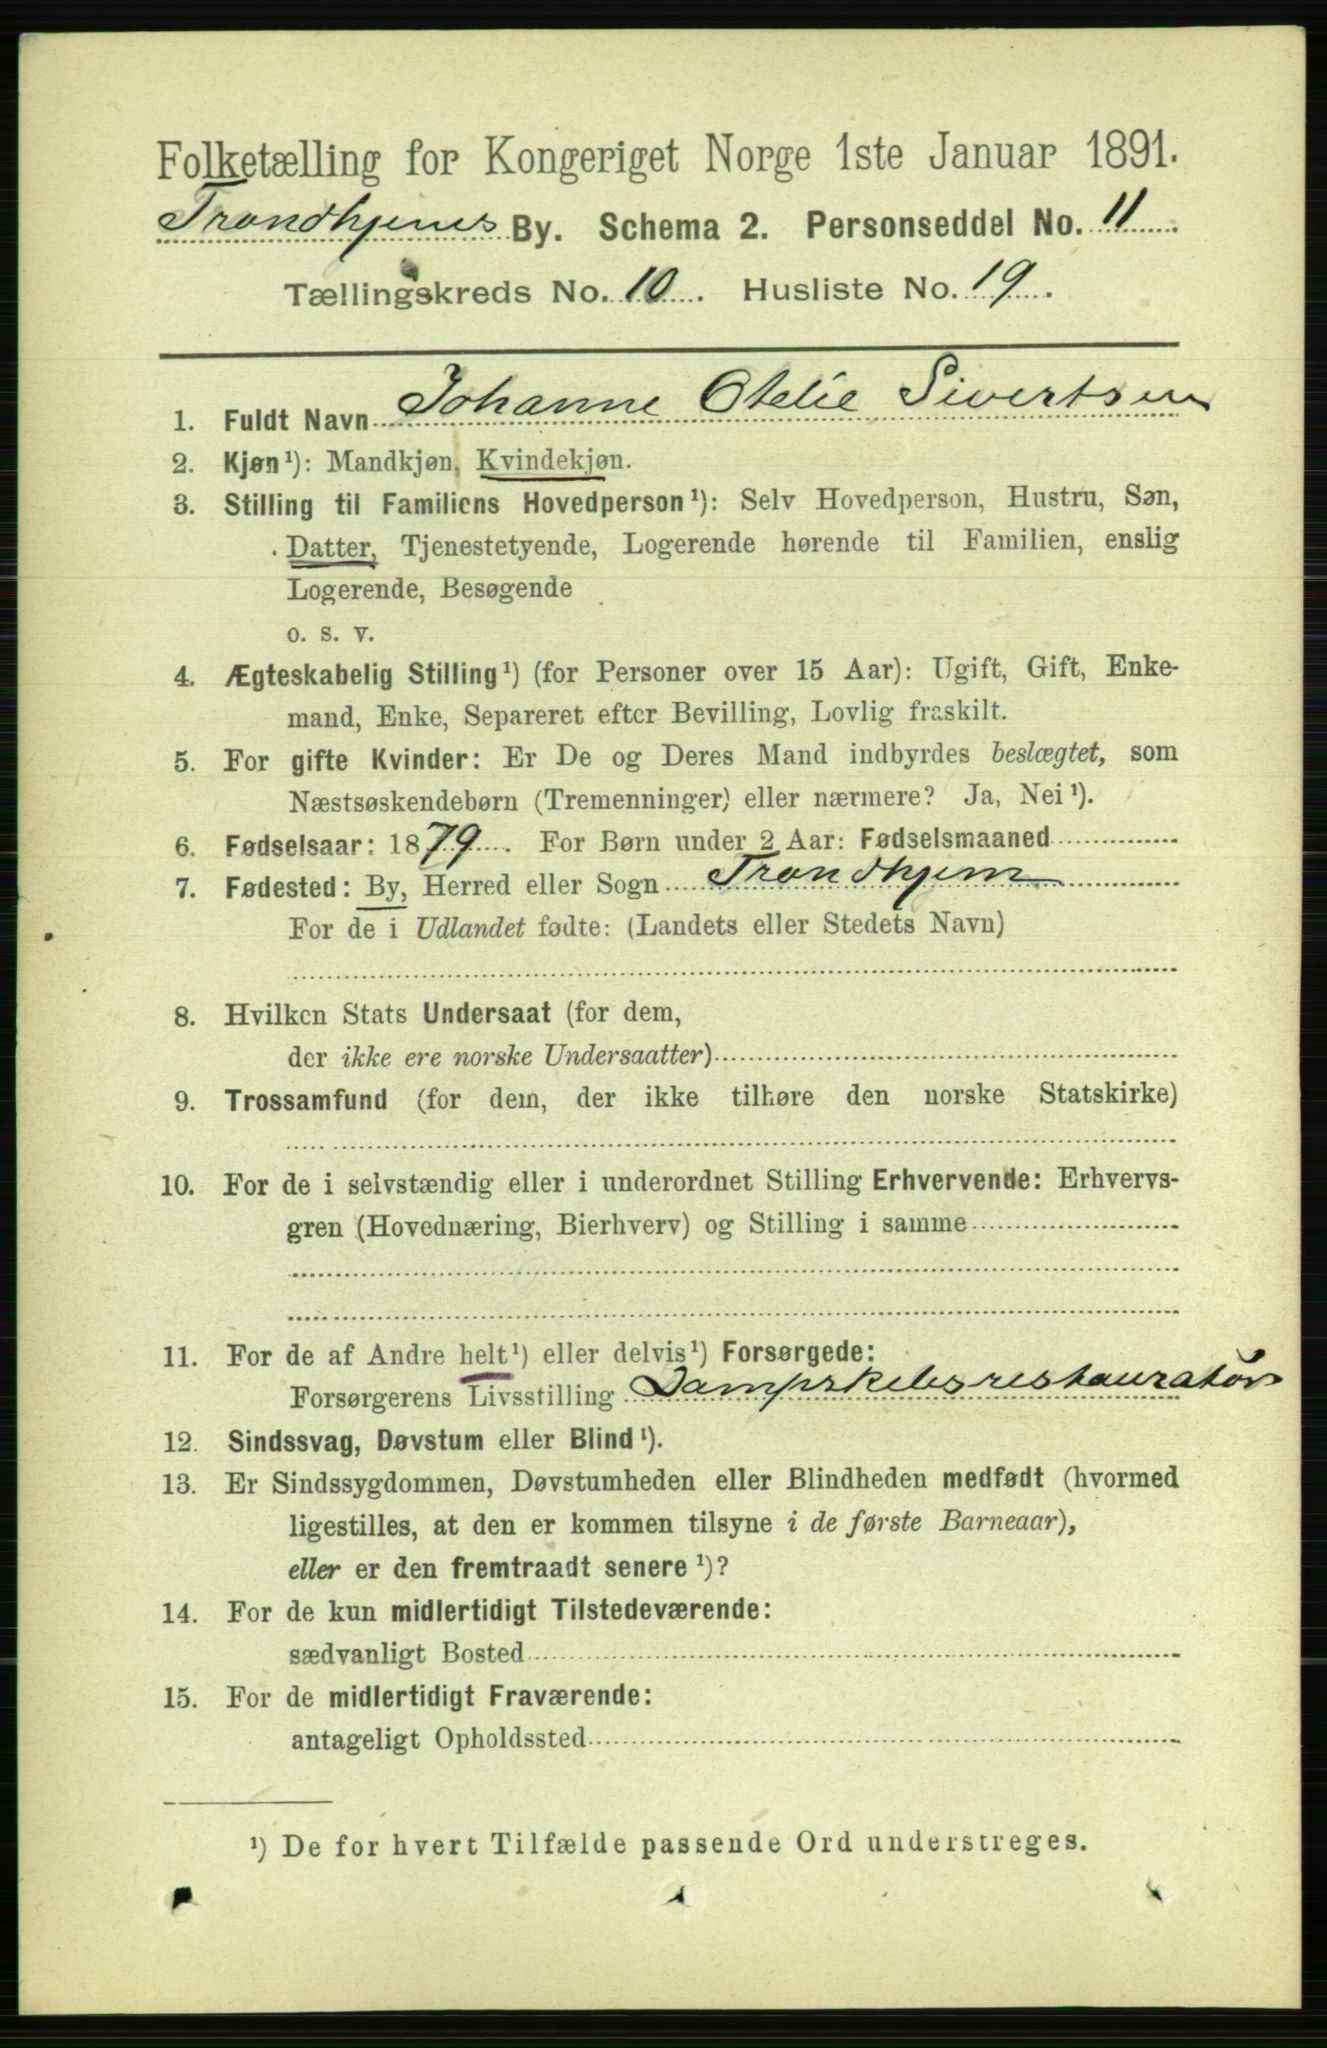 Folketælling for Kongeriget Norge 1ste Januar 1891.
Trondhjems By. Schema 2. Personseddel No. 11
Tællingskreds No. 10. Husliste No. 19.
1. Fuldt Navn Johanne Otelie Sivertsen
2. Kjøn¹): Mandkjøn, Kvindekjøn.
3. Stilling til Familiens Hovedperson¹): Selv Hovedperson, Hustru, Søn,
Datter, Tjenestetyende, Logerende hørende til Familien, enslig
Logerende, Besøgende
o. s. v.
4. Ægteskabelig Stilling¹) (for Personer over 15 Aar): Ugift, Gift, Enke-
mand, Enke, Separeret efter Bevilling, Lovlig fraskilt.
5. For gifte Kvinder: Er De og Deres Mand indbyrdes beslægtet, som
Næstsøskendebørn (Tremenninger) eller nærmere? Ja, Nei¹).
6. Fødselsaar: 1879. For Børn under 2 Aar: Fødselsmaaned
7. Fødested: By, Herred eller Sogn Trondhjem
For de i Udlandet fødte: (Landets eller Stedets Navn)
8. Hvilken Stats Undersaat (for dem,
der ikke ere norske Undersaatter)
9. Trossamfund (for dem, der ikke tilhøre den norske Statskirke)
10. For de i selvstændig eller i underordnet Stilling Erhvervende: Erhvervs-
gren (Hovednæring, Bierhverv) og Stilling i samme
11. For de af Andre helt¹) eller delvis¹) Forsørgede:
Forsørgerens Livsstilling Dampskibsrestauratør
12. Sindssvag, Døvstum eller Blind¹).
13. Er Sindssygdommen, Døvstumheden eller Blindheden medfødt (hvormed
ligestilles, at den er kommen tilsyne i de første Barneaar),
eller er den fremtraadt senere¹)?
14. For de kun midlertidigt Tilstedeværende:
sædvanligt Bosted
15. For de midlertidigt Fraværende:
antageligt Opholdssted
¹) De for hvert Tilfælde passende Ord understreges.